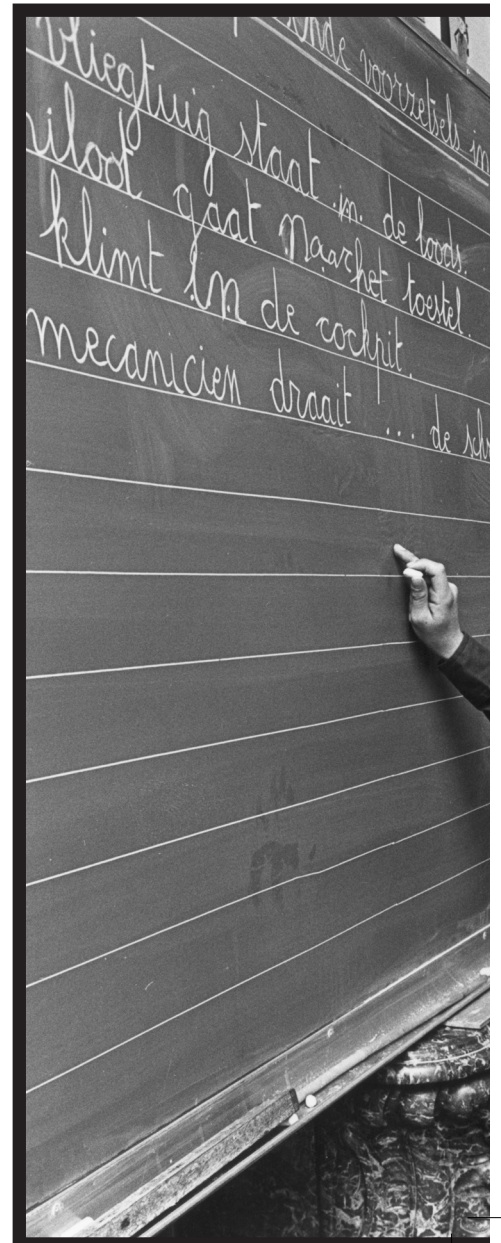 voorzetsels in
vliegtuig staat in de loods.
gaat naar het toestel.
klimt in de cockpit.
mecanicien draait ... de